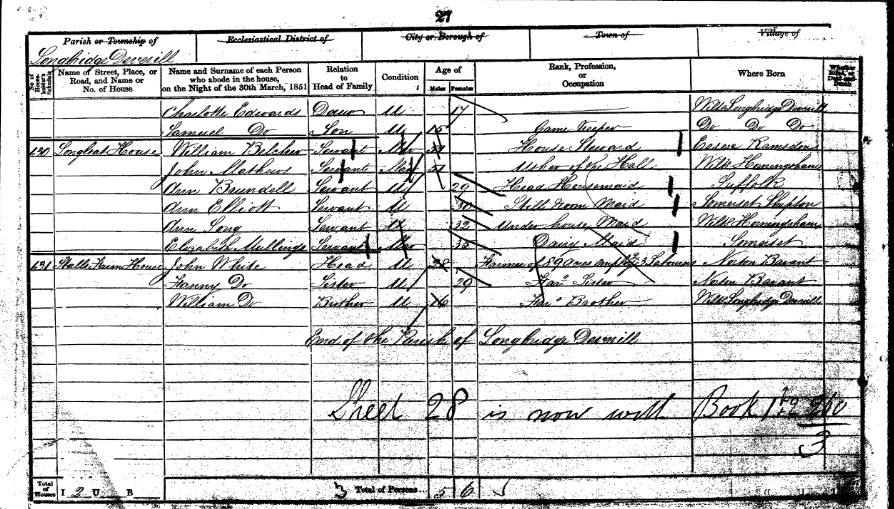 27
Parish or Township of Ecclesiastical District of City or Borough of Town of Village of
Longbridge Deverill
Name of Street, Place, or Road, and Name or No. of House
Name and Surname of each Person who abode in the house, on the Night of the 30th March, 1851
Relation to Head of Family
Condition
Age of
Males Females
Rank, Profession, or Occupation
Where Born
Charlotte Edwards Daur U 17 Wilts Longbridge Deverill
Samuel Do Son U 15 Game Keeper Do Do Do
130 Longleat House William Belcher Servant Mar House Steward Ramsden
John Mathews Servant Mar Usher of the Hall Wilts Horningsham
Ann Brundell Servant U 29 Head Housemaid Suffolk
Ann Elliott Servant U 30 Still room Maid Somerset Shipton
Ann Long Servant U 32 Under house Maid Wilts Horningsham
Elizabeth Mullings Servant 35 Dairy Maid Somerset
131 Farm House John White Head U 28 Farmer of 89 acres Labourers Norton Bavant
Fanny Do Sister U 29 Farrs Sister Norton Bavant
William Do Brother U 26 Farrs Brother Wilts Longbridge Deverill
End of the Parish of Longbridge Deverill
Sheet 28 is now with Book 1+2
3
Total of Houses I 2 U B 3 Total of Persons 5 6